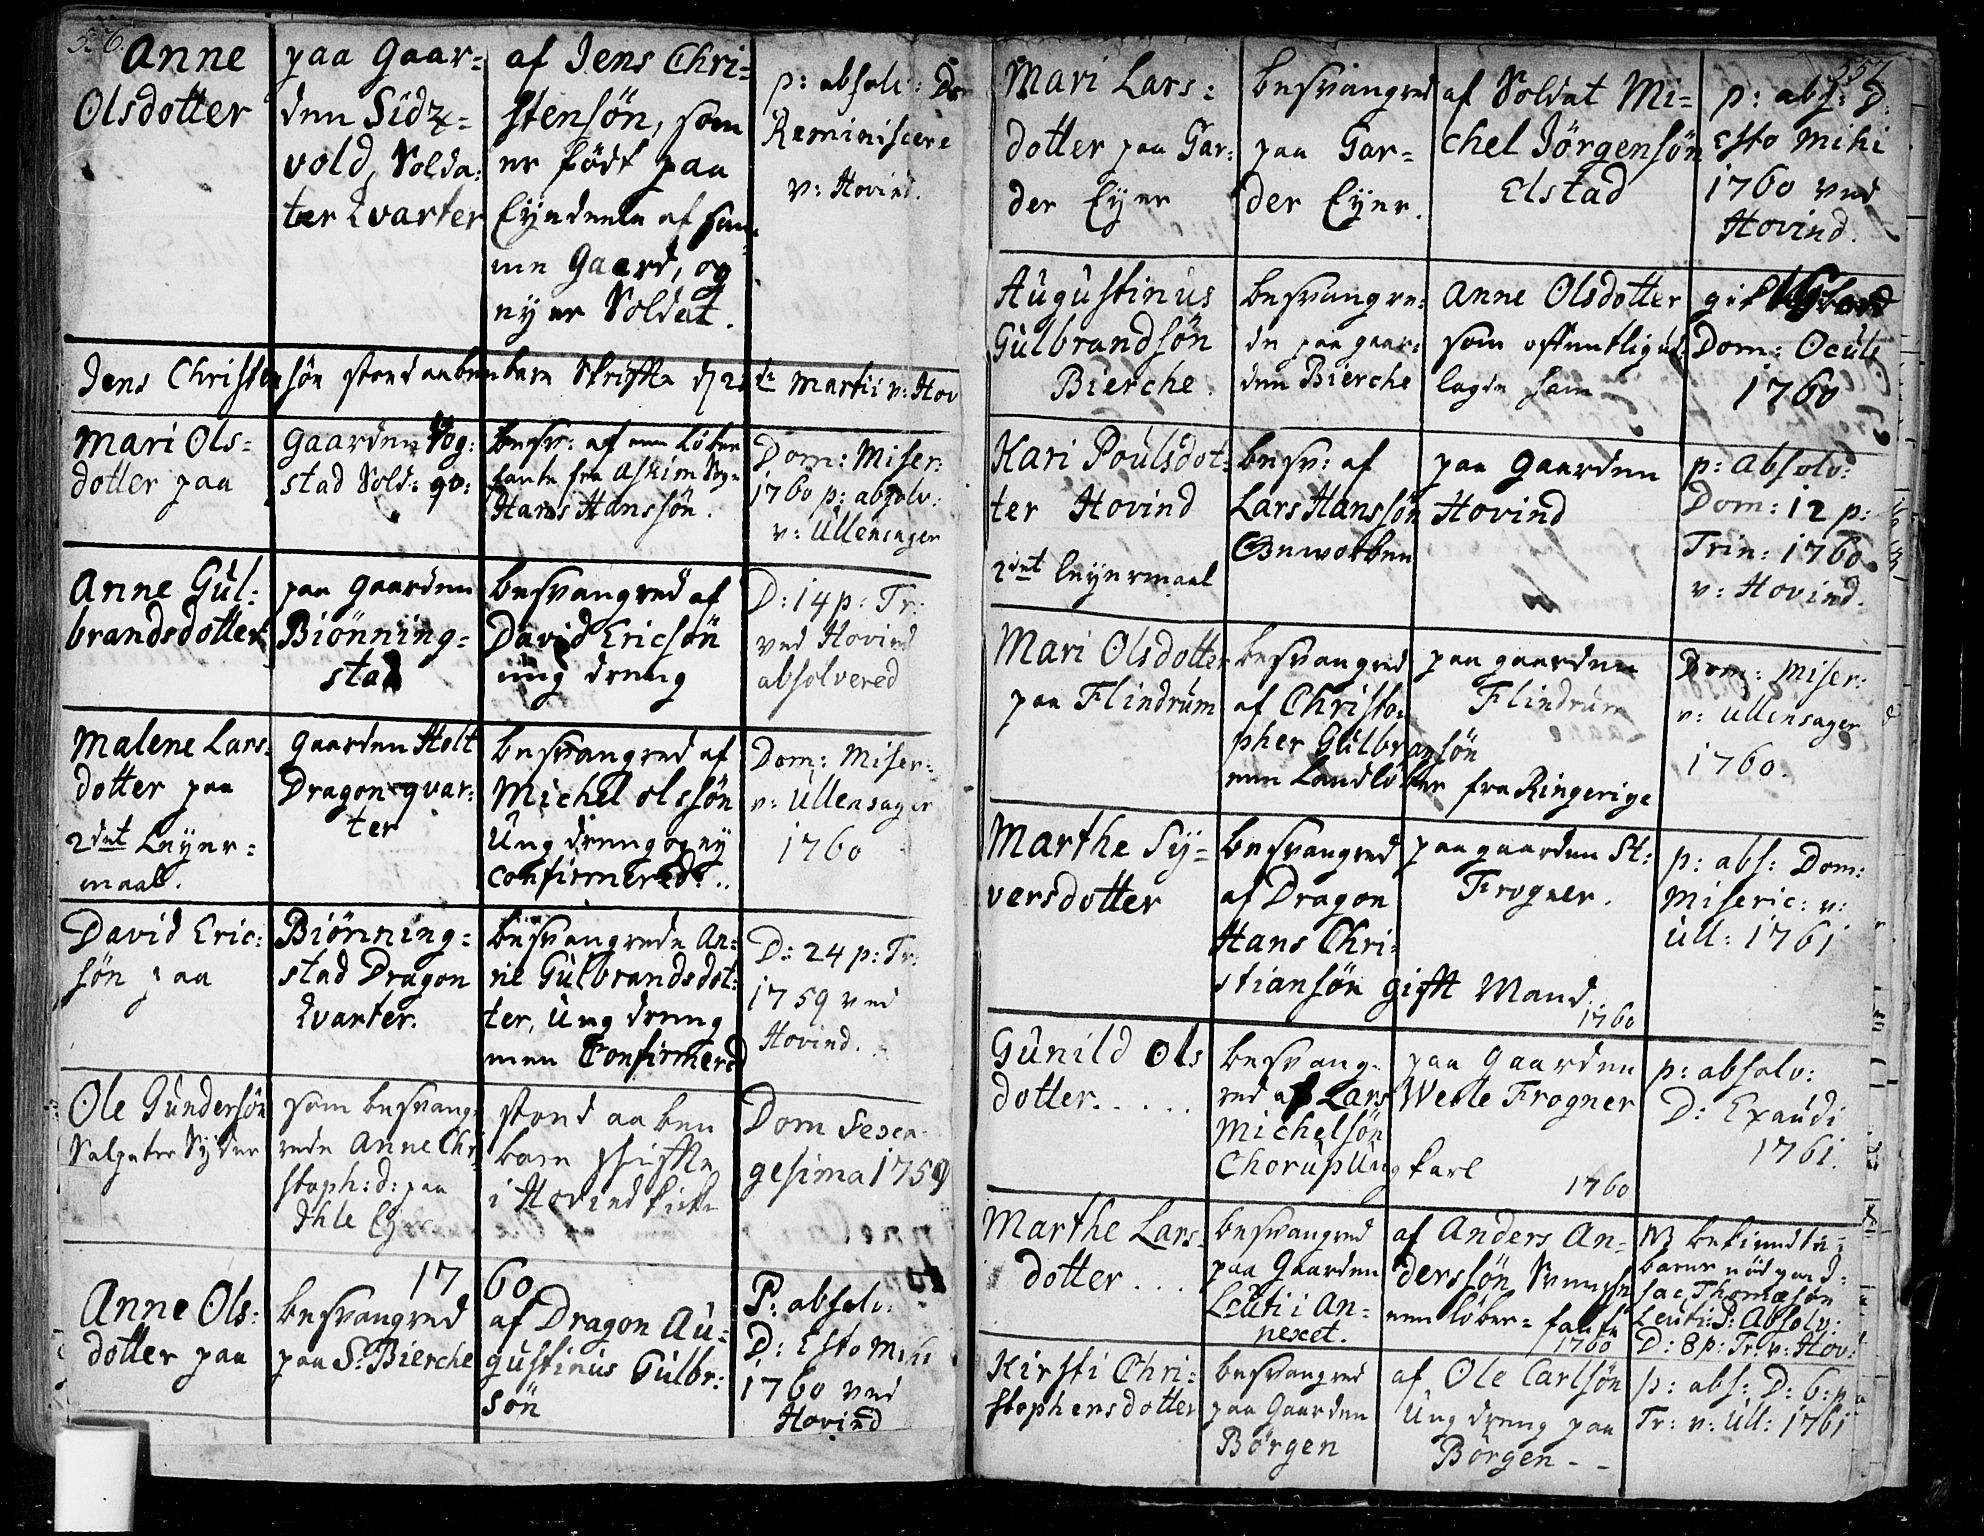 556.
Anne
Olsdotter
paa Gaar=
den Sidz=
vold, Solda:
ter Qvarter
af Jens Chri=
stensøn, som
er født paa
Eyendeele af sam:
me Gaard, og
nyer Soldat.
p: absolv: Do
Reminiscere
v: Hovind.
Jens Christensøn stoed aabenbare Skrifte d 2 de Martii v: Hov
Mari Ols=
dotter paa
Gaarden Vog:
stad Sold: qv:
besv: af en Løber
fante fra Askim Sogn
Hans Hanssøn.
Dom: Miser:
1760 p: absolv:
v: Ullensager
Anne Gul:
brandsdotter
paa Gaarden
Biönning=
stad
besvangred af
David Ericsøn
ung dreng
D: 14 p: Tr:
ved Hovind
absolvered
Malene Lars=
dotter paa
2det Leyer=
maal.
Gaarden Holt
Dragon-qvar:
ter
besvangred af
Michel olssøn
Ung dreng og ny
confirmered..
Dom: Miser:
v: Ullensager
1760
David Eric:
søn paa
Biönning=
stad Dragon
Qvarter.
besvangrede An=
ne Gulbrandsdot:
ter, Ung dreng
men Confirmered
D: 24 p: Tr:
1759 ved
Hovind.
Ole Gundersøn
Salpeter Syder
som besvang:
rede Anne Chri
stoph: d: paa
Ihle Eyer
stoed aaben
bare skrifte
i Hovind kirke
Dom Sexa=
gesima 1759
1760
Anne Ols:
dotter paa
besvangred
paa S: Bierche
af Dragon Au=
gustinus Gulbr:
søn
P: absolv:
D: Esto mihi
1760 ved
Hovind
557
Mari Lars:
dotter paa Gar:
der Eyer
besvangred
paa Gar=
der Eyer.
af Soldat Mi=
chel Jörgensøn
Elstad
p: abs: D:
Esto Mihi
1760 ved
Hovind.
Augustinus
Gulbrandsøn
Bierche.
besvangre:
de paa gaar:
den Bierche
Anne Olsdotter
som offentlig ud:
lagde ham
Dom: Oculi
1760
Kari Poulsdot:
ter Hovind
2det leyermaal
besv: af
Lars Hanssøn
Onworben
paa Gaarden
Hovind
p: Absolv:
Dom: 12 p:
Trin: 1760
v: Hovind.
Mari Olsdotter
paa Flindrum
besvangred
af Christo:
pher Gulbransøn
een Landløber fra Ringerige
paa gaarden
Flindrum
Dom: Miser:
v: Ullensager
1760.
Marthe Sy=
versdotter
besvangred
af Dragon
Hans Chri=
stiansøn gift Mand
1760
paa gaarden St:
Frogner.
p: abs: Dom:
Miseric: v:
Ull: 1761
Gunild Ols
dotter.....
besvang=
red af Lars
Michelsøn
Chorup Ung karl
1760
paa Gaarden
Weste Frogner
p: absolv:
D: Exaudi
1761.
Marthe Lars=
dotter...
besvangred
paa Gaarden
Leuti i An=
nexet.
af Anders An=
derssøn Svensche
een løber=fante
1760
N bekiendte
sac Thomæsøn
Leuti: D: Absolv:
D: 8 p: Tr: v: Hov:
Kirsti Chri=
stophersdotter
besvangred
paa Gaarden
Börgen
af Ole Carlsøn
Ung dreng paa
Börgen - -
p: abs: D: 6: p
Tr: v: Ull: 1761